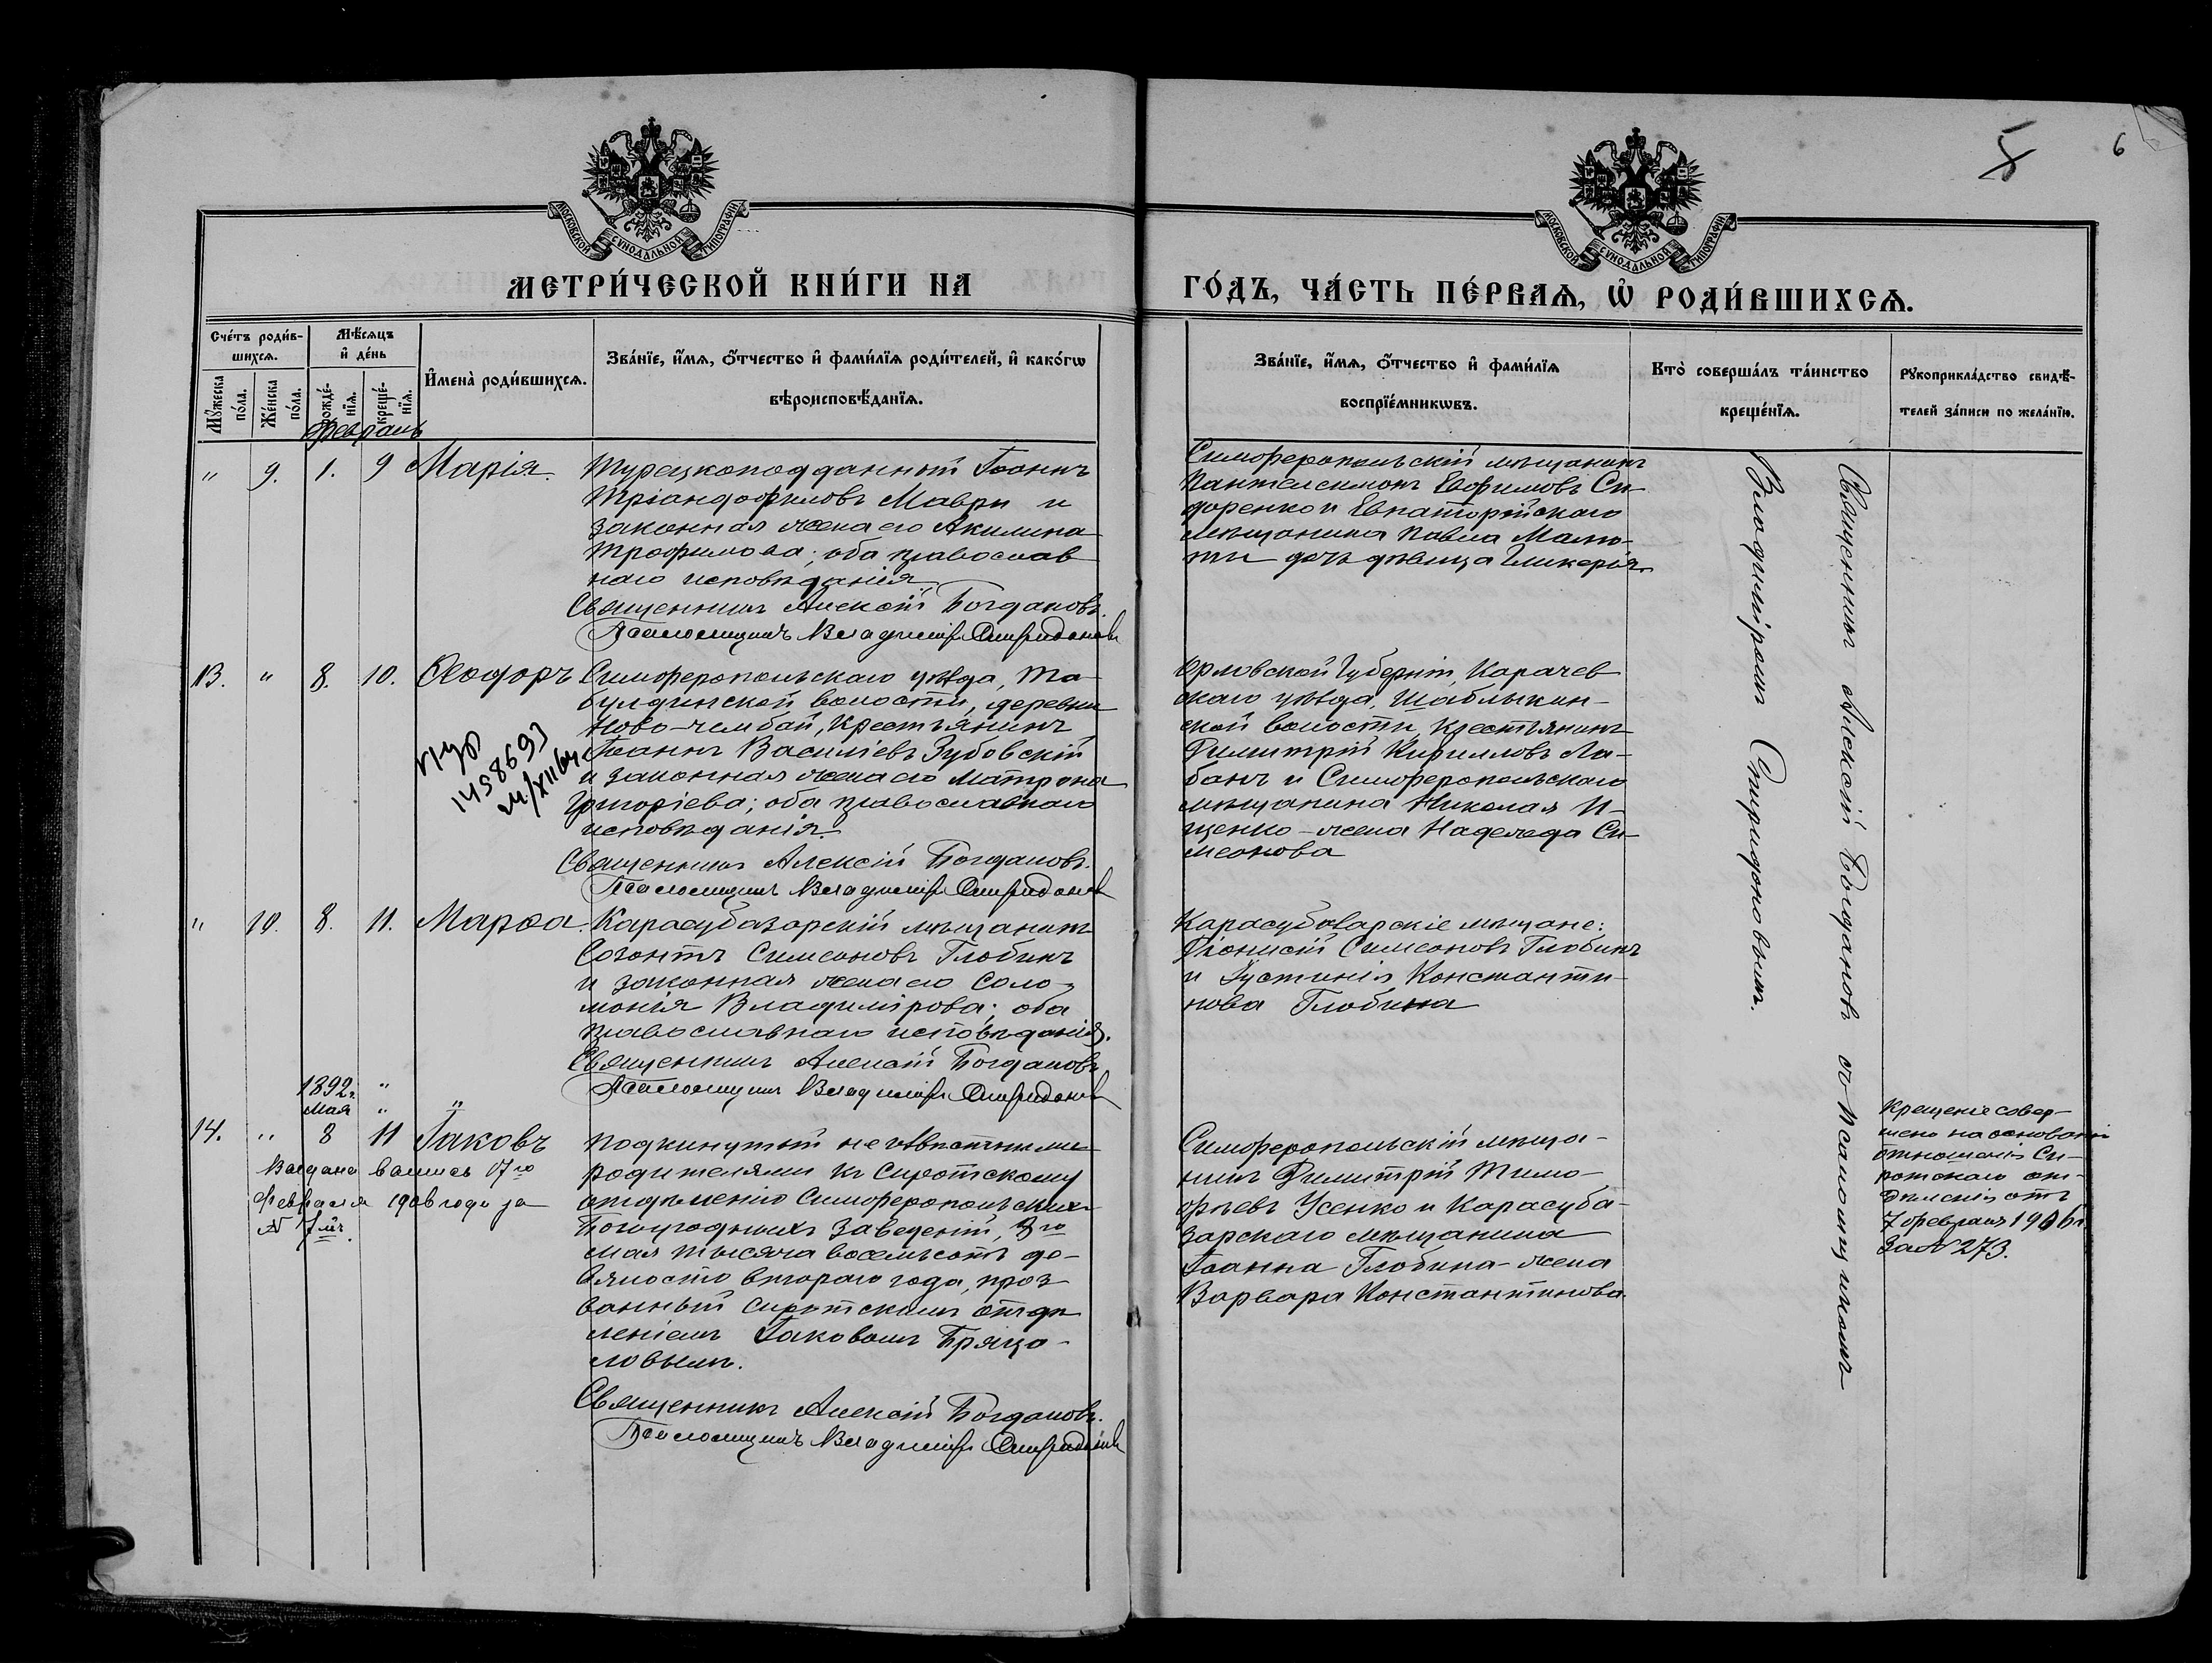 5
6
МОСКОВСКОЙ СУНОДАЛЬНОЙ ТИПОГРАФІИ
МОСКОВСКОЙ СУНОДАЛЬНОЙ ТИПОГРАФІИ
МЕТРИ́ЧЕСКОЙ КНИ́ГИ НА
ГО́ДЪ, ЧА́СТЬ ПЕ́РВАѦ, Ѡ҆ РОДИ́ВШИХСѦ.
Сче́тъ роди́в-
шихсѧ.
Мѣ́сѧцъ
и҆ де́нь
Мꙋ́жеска
по́ла.
Же́нска
по́ла.
рожде́-
нїѧ.
креще́-
нїѧ.
И҆мена̀ роди́вшихсѧ.
Зва́нїе, и҆́мѧ, ѻ҆́тчество и҆ фами́лїѧ роди́телей, и҆ како́гѡ
вѣроисповѣ́данїѧ.
Зва́нїе, и҆́мѧ, ѻ҆́тчество и҆ фами́лїѧ
воспрїе́мникѡвъ.
Кто̀ соверша́лъ та́инство
креще́нїѧ.
Рꙋкоприкла́дство свидѣ́-
телей за́писи по жела́нїю.
Февраль
" 9. 1. 9 Марія.
Турецкоподданный Іоаннъ
Тріандофиловъ Маври и
законная жена его Акилина
Трофимова; оба православ
наго исповѣданія.
Священникъ Алексій Богдановъ.
Псаломщикъ Владиміръ Спиридоновъ
Симферопольскій мѣщанинъ
Пантелеимонъ Евфимовъ Си-
доренко и Евпаторійскаго
мѣщанина Павла
дочь дѣвица Гликерія.
13. " 8. 10. Ѳеодоръ
Симферопольскаго уѣзда, Та-
булдинской волости, деревни
Ново-чембай, крестьянинъ
Іоаннъ Василіевъ Зубовскій
и законная жена его Матрона
Григоріева; оба православнаго
исповѣданія.
Священникъ Алексій Богдановъ.
Псаломщикъ Владиміръ Спиридоновъ
1458693
Орловской Губерніи, Карачев
скаго уѣзда, Шаблыкин-
ской волости, крестьянинъ
Димитрій Кирилловъ Ла-
банъ и Симферопольскаго
мѣщанина Николая И-
щенко - жена Надежда Си-
меонова
" 10. 8. 11. Марѳа.
Карасубазарскій мѣщанинъ
Созонтъ Симеоновъ Глобинъ
и законная жена его Соло-
монія Владимірова; оба
православнаго исповѣданія.
Священникъ Алексій Богдановъ
Псаломщикъ Владиміръ Спиридоновъ
Карасубазарскіе мѣщане:
Діонисій Симеоновъ Глобинъ
и Іустинія Константи-
нова Глобина
1892 г. "
Мая " "
14. " 8 11 Іаковъ
Выдана вы­пись 17го
Февраля 1906 года за
№ 7мъ.
Подкинутый неизвѣстными
родителями къ Сиротскому
отдѣленію Симферопольскихъ
Богоугодныхъ Заведеній, 8го
мая тысяча восемьсотъ де-
вяносто втораго года, проз
ванный Сиротскимъ отдѣ
леніемъ Іаковомъ Бряцо-
ловымъ.
Священникъ Алексій Богдановъ.
Псаломщикъ Владиміръ Спиридоновъ
Симферопольскій мѣща-
нинъ Димитрій Тимо-
ѳеевъ Усенко и Карасуба-
зарскаго мѣщанина
Іоанна Глобина - жена
Варвара Константинова.
Священникъ Алексій Богдановъ съ Псаломщикомъ
Владиміромъ Спиридоновымъ.
Крещеніе совер-
шено на основаніи
отношенія Си-
ротскаго от-
дѣленія отъ
7 февраля 1906 г.
За № 273.